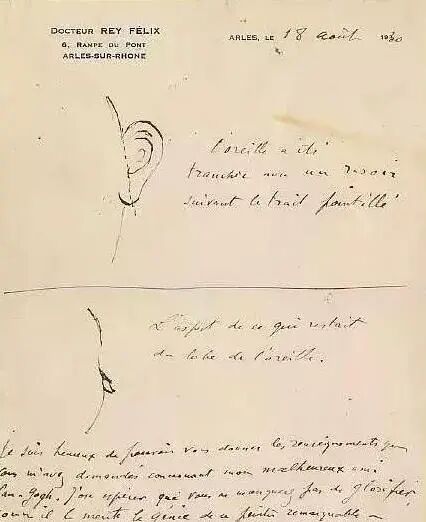 DOCTEUR REY FÉLIX
6, RAMPE DU PONT
ARLES-SUR-RHONE
ARLES, LE 18 août 1930
l'oreille a été
tranchée avec un rasoir
suivant le trait pointillé
L'aspect de ce qui restait
du lobe de l'oreille.
Je suis heureux de pouvoir vous donner les renseignements que
vous m'avez demandés concernant mon malheureux ami
Van-Gogh. J'ose espérer que vous ne manquerez pas de glorifier
comme il le mérite le génie de ce peintre remarquable —